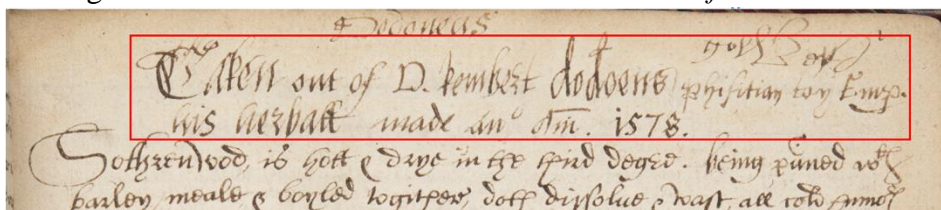 Dodoneus
Taken out of D. Rembert dodoens phisitian to y Emp.
his herball made an dm. 1578.
Sothrenwod, is hott & drye in the third degre. being puned wth
barley meale & boyled togither, doth dissolve & wast all cold tumo